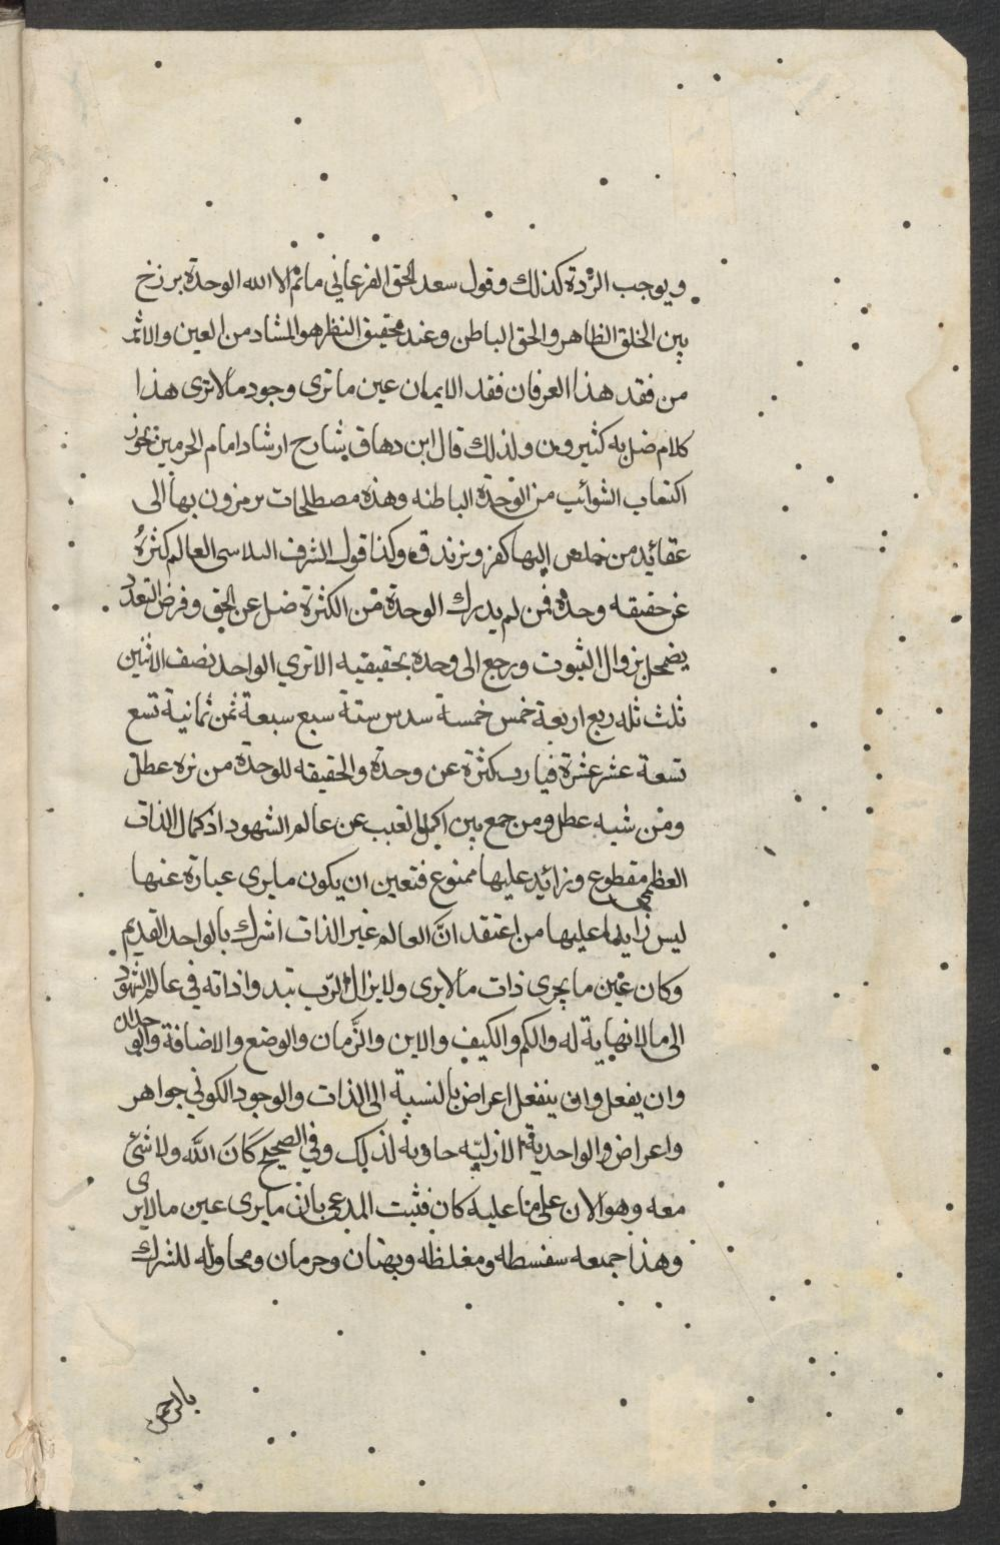 ويوجب الردة كذلك وقول سعد الحق الفرغاني ماثم الا الله الوحدة برزخ
بين الخلق الظاهر والحق الباطن وعند محقيق النظر هو المشاد من العين والاثر
من فقد هذا العرفان فقد الايمان عين ما ترى وجود ما لا ترى هذا
كلام ضل به كثيرون ولذلك قال ابن دهاق شارح ارشاد امام الحرمين تجوز
الشوائب من الوحدة الباطنه وهذه مصطلحات يرمزون بها الى
عقائد من خلص اليها كفر وتزندق وكذا قول الشرف العالم كثرة
عن حقيقه وحدة فمن لم يدرك الوحدة من الكثرة ضل عن الحق وفرض التعدد
يضمحل بزوال الثبوت ورجع الى وحدة بحقيقيه الا تري الواحد نصف الاثنين
ثلث ثله ربع اربعة خمس خمسة سدس ستة سبع سبعة ثمن ثمانية تسع
تسعة عشر عشرة فيا رب كثرة عن وحدة والحقيقه للوحدة من نزه عطل
ومن شبه عطل ومن جمع بين عن عالم الشهود اذ كمال الذات
العظمى مقطوع وزائد عليها ممنوع فتعين ان يكون ما يرى عبارة عنها
ليس زايدا عليها من اعتقد ان العالم غير الذات اشرك بالواحد القديم
وكان عين ما يرى ذات ما لا يرى ولا يزال الرب تبدوا ذاته في عالم الشهود
الى مالا نهاية له والكم والكيف والاين والزمان والوضع والاضافة
وان يفعل وان ينفعل اعراض بالنسبة الى الذات والوجود الكوني جواهر
واعراض والواحدية الازليه حاوية لذلك وفي الصحيح كان الله ولا شئ
معه وهو الان على ما عليه كان فثبت المدعى بان ما يرى عين ما لا يرى
وهذا جميعه سفسطه ومغلظه وبهتان وحرمان ومحاوله للشرك
بالرحمن